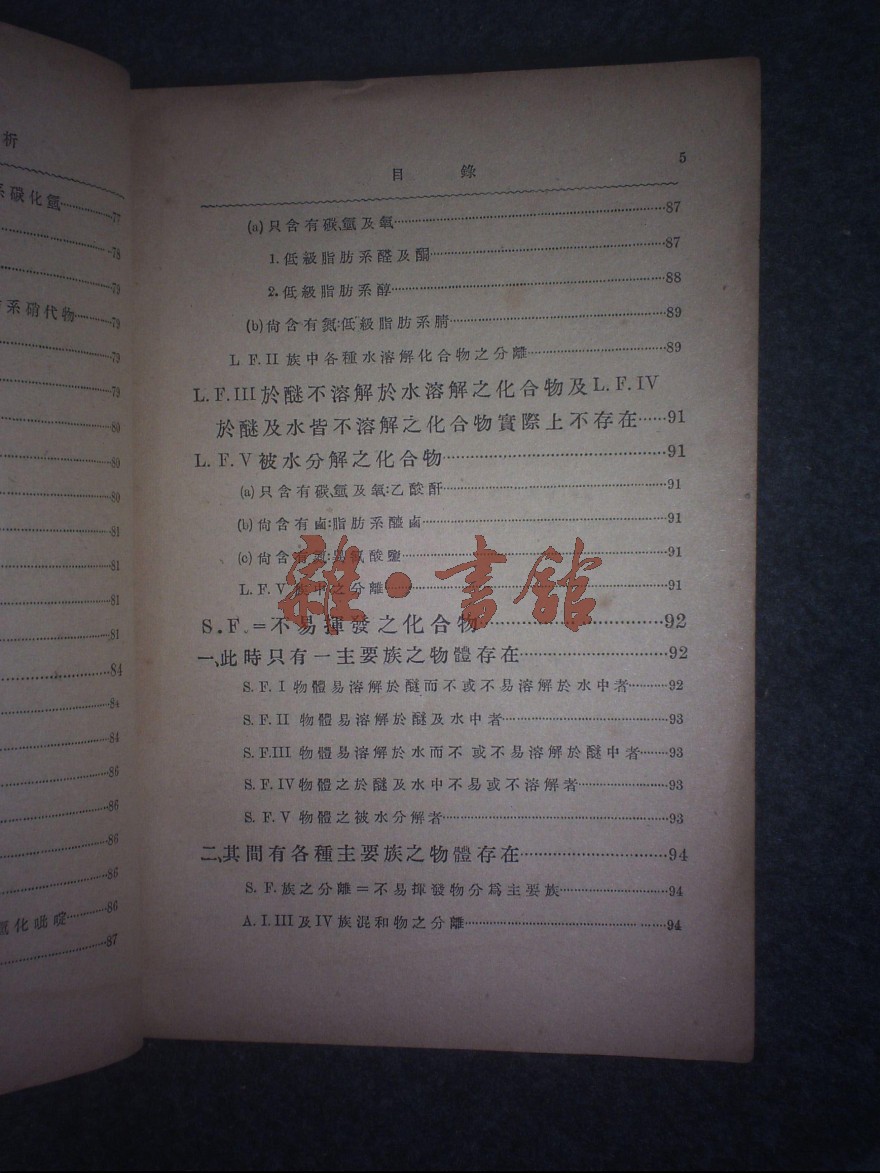 析
系磺化氫……77
……78
……79
系硝代物……79
……79
……79
……80
……80
……80
……81
……81
……81
……81
……84
……84
……84
……86
……86
……86
……86
氫化吡啶……86
……87
目 錄 5
(a)只含有碳、氫及氧……87
1.低級脂肪系醛及酮……87
2.低級脂肪系醇……88
(b)尙含有氮:低級脂肪系腈……89
L. F.II 族中各種水溶解化合物之分離……89
L.F.III於醚不溶解於水溶解之化合物及L.F.IV
於醚及水皆不溶解之化合物實際上不存在……91
L.F.V被水分解之化合物……91
(a)只含有碳、氫及氧:乙酸酐……91
(b)尙含有鹵:脂肪系醯鹵……91
(c)尙含有氮:異氰酸鹽……91
L.F.V族中之分離……91
雜·書館
S.F.=不易揮發之化合物……92
一、此時只有一主要族之物體存在……92
S.F. I 物體易溶解於醚而不或不易溶解於水中者……92
S.F.II 物體易溶解於醚及水中者……93
S.F.III 物體易溶解於水而不或不易溶解於醚中者……93
S.F.IV物體之於醚及水中不易或不溶解者……93
S.F.V 物體之被水分解者……93
二、其間有各種主要族之物體存在……94
S.F.族之分離=不易揮發物分爲主要族……94
A.I.III及IV族混和物之分離……94